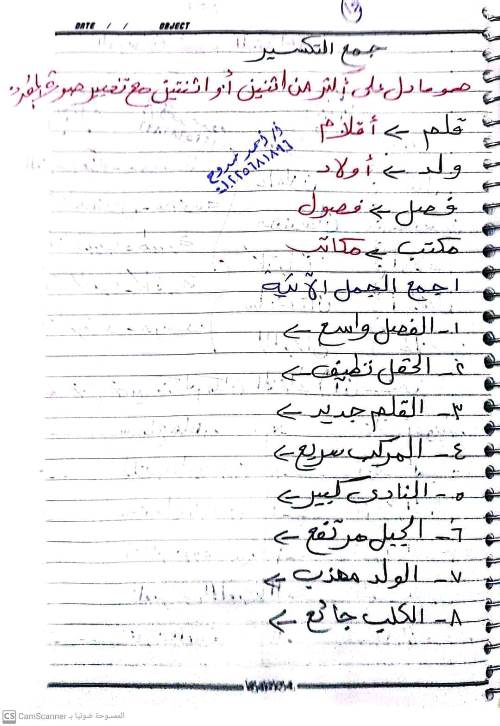 DATE / / OBJECT
جمع التكسير
هو ما دل على أكثر من اثنين أو اثنتين مع تغيير صورة المفرد
قلم ← أقلام
ولد ← أولاد
فصل ← فصول
مكتب ← مكاتب
اجمع الجمل الآتية
١- الفصل واسع ←
٢- الحقل نظيف ←
٣- القلم جديد ←
٤- المركب سريع ←
٥- النادى كبير ←
٦- الجبل مرتفع ←
٧- الولد مهذب ←
٨- الكلب جائع ←
CS CamScanner الممسوحة ضوئيا بـ